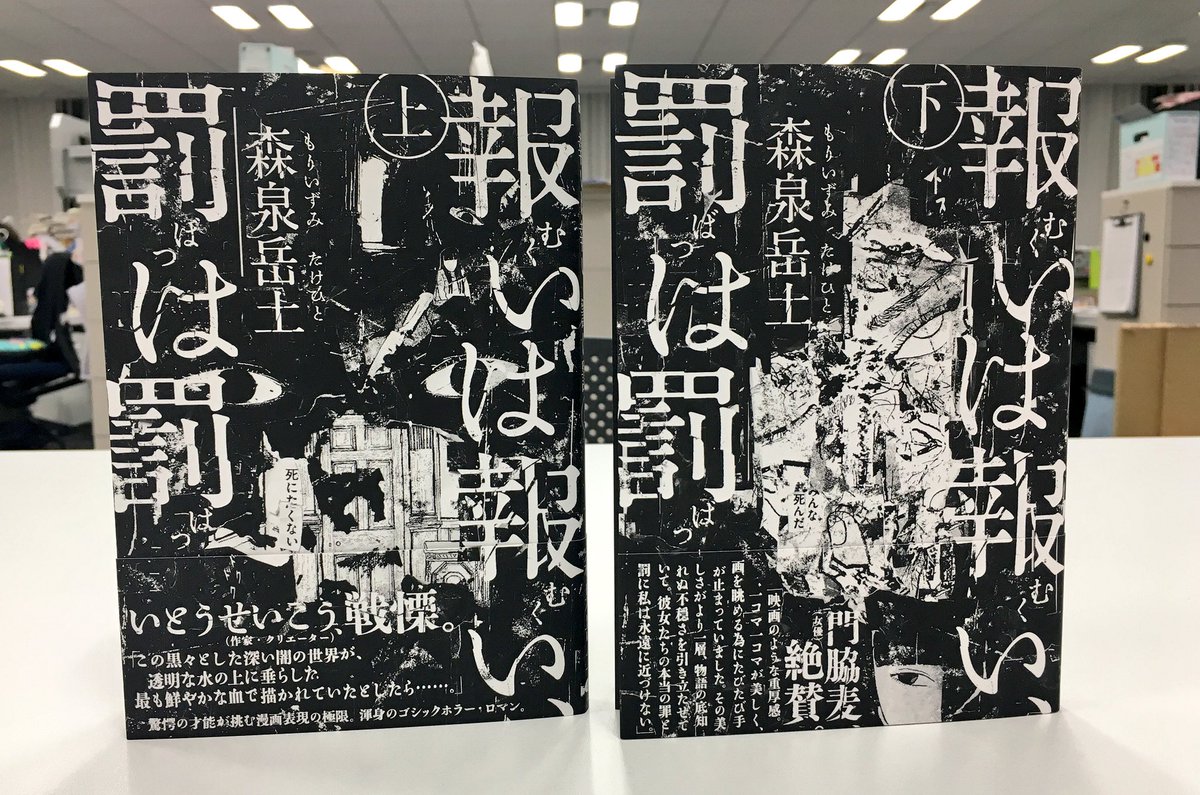 報いは報い、
むく
むく
罰は罰
ばつ
ばつ
上
森泉岳土
もりいずみ たけひと
死にたくない
いとうせいこう、戦慄。
(作家・クリエーター)
「この黒々とした深い闇の世界が、
透明な水の上に垂らした
最も鮮やかな血で描かれていたとしたら……。」
驚愕の才能が挑む漫画表現の極限。渾身のゴシックホラー・ロマン。
報いは報い、
むく
むく
罰は罰
ばつ
ばつ
下
森泉岳土
もりいずみ たけひと
みんな
死んだ
門脇麦
女優
絶賛。
「映画のような重厚感。
一コマ一コマが美しく、
画を眺める為にたびたび手
が止まっていました。その美
しさがより一層、物語の底知
れぬ不穏さを引き立たせて
いて。彼女たちの本当の罪と
罰に私は永遠に近づけない。」